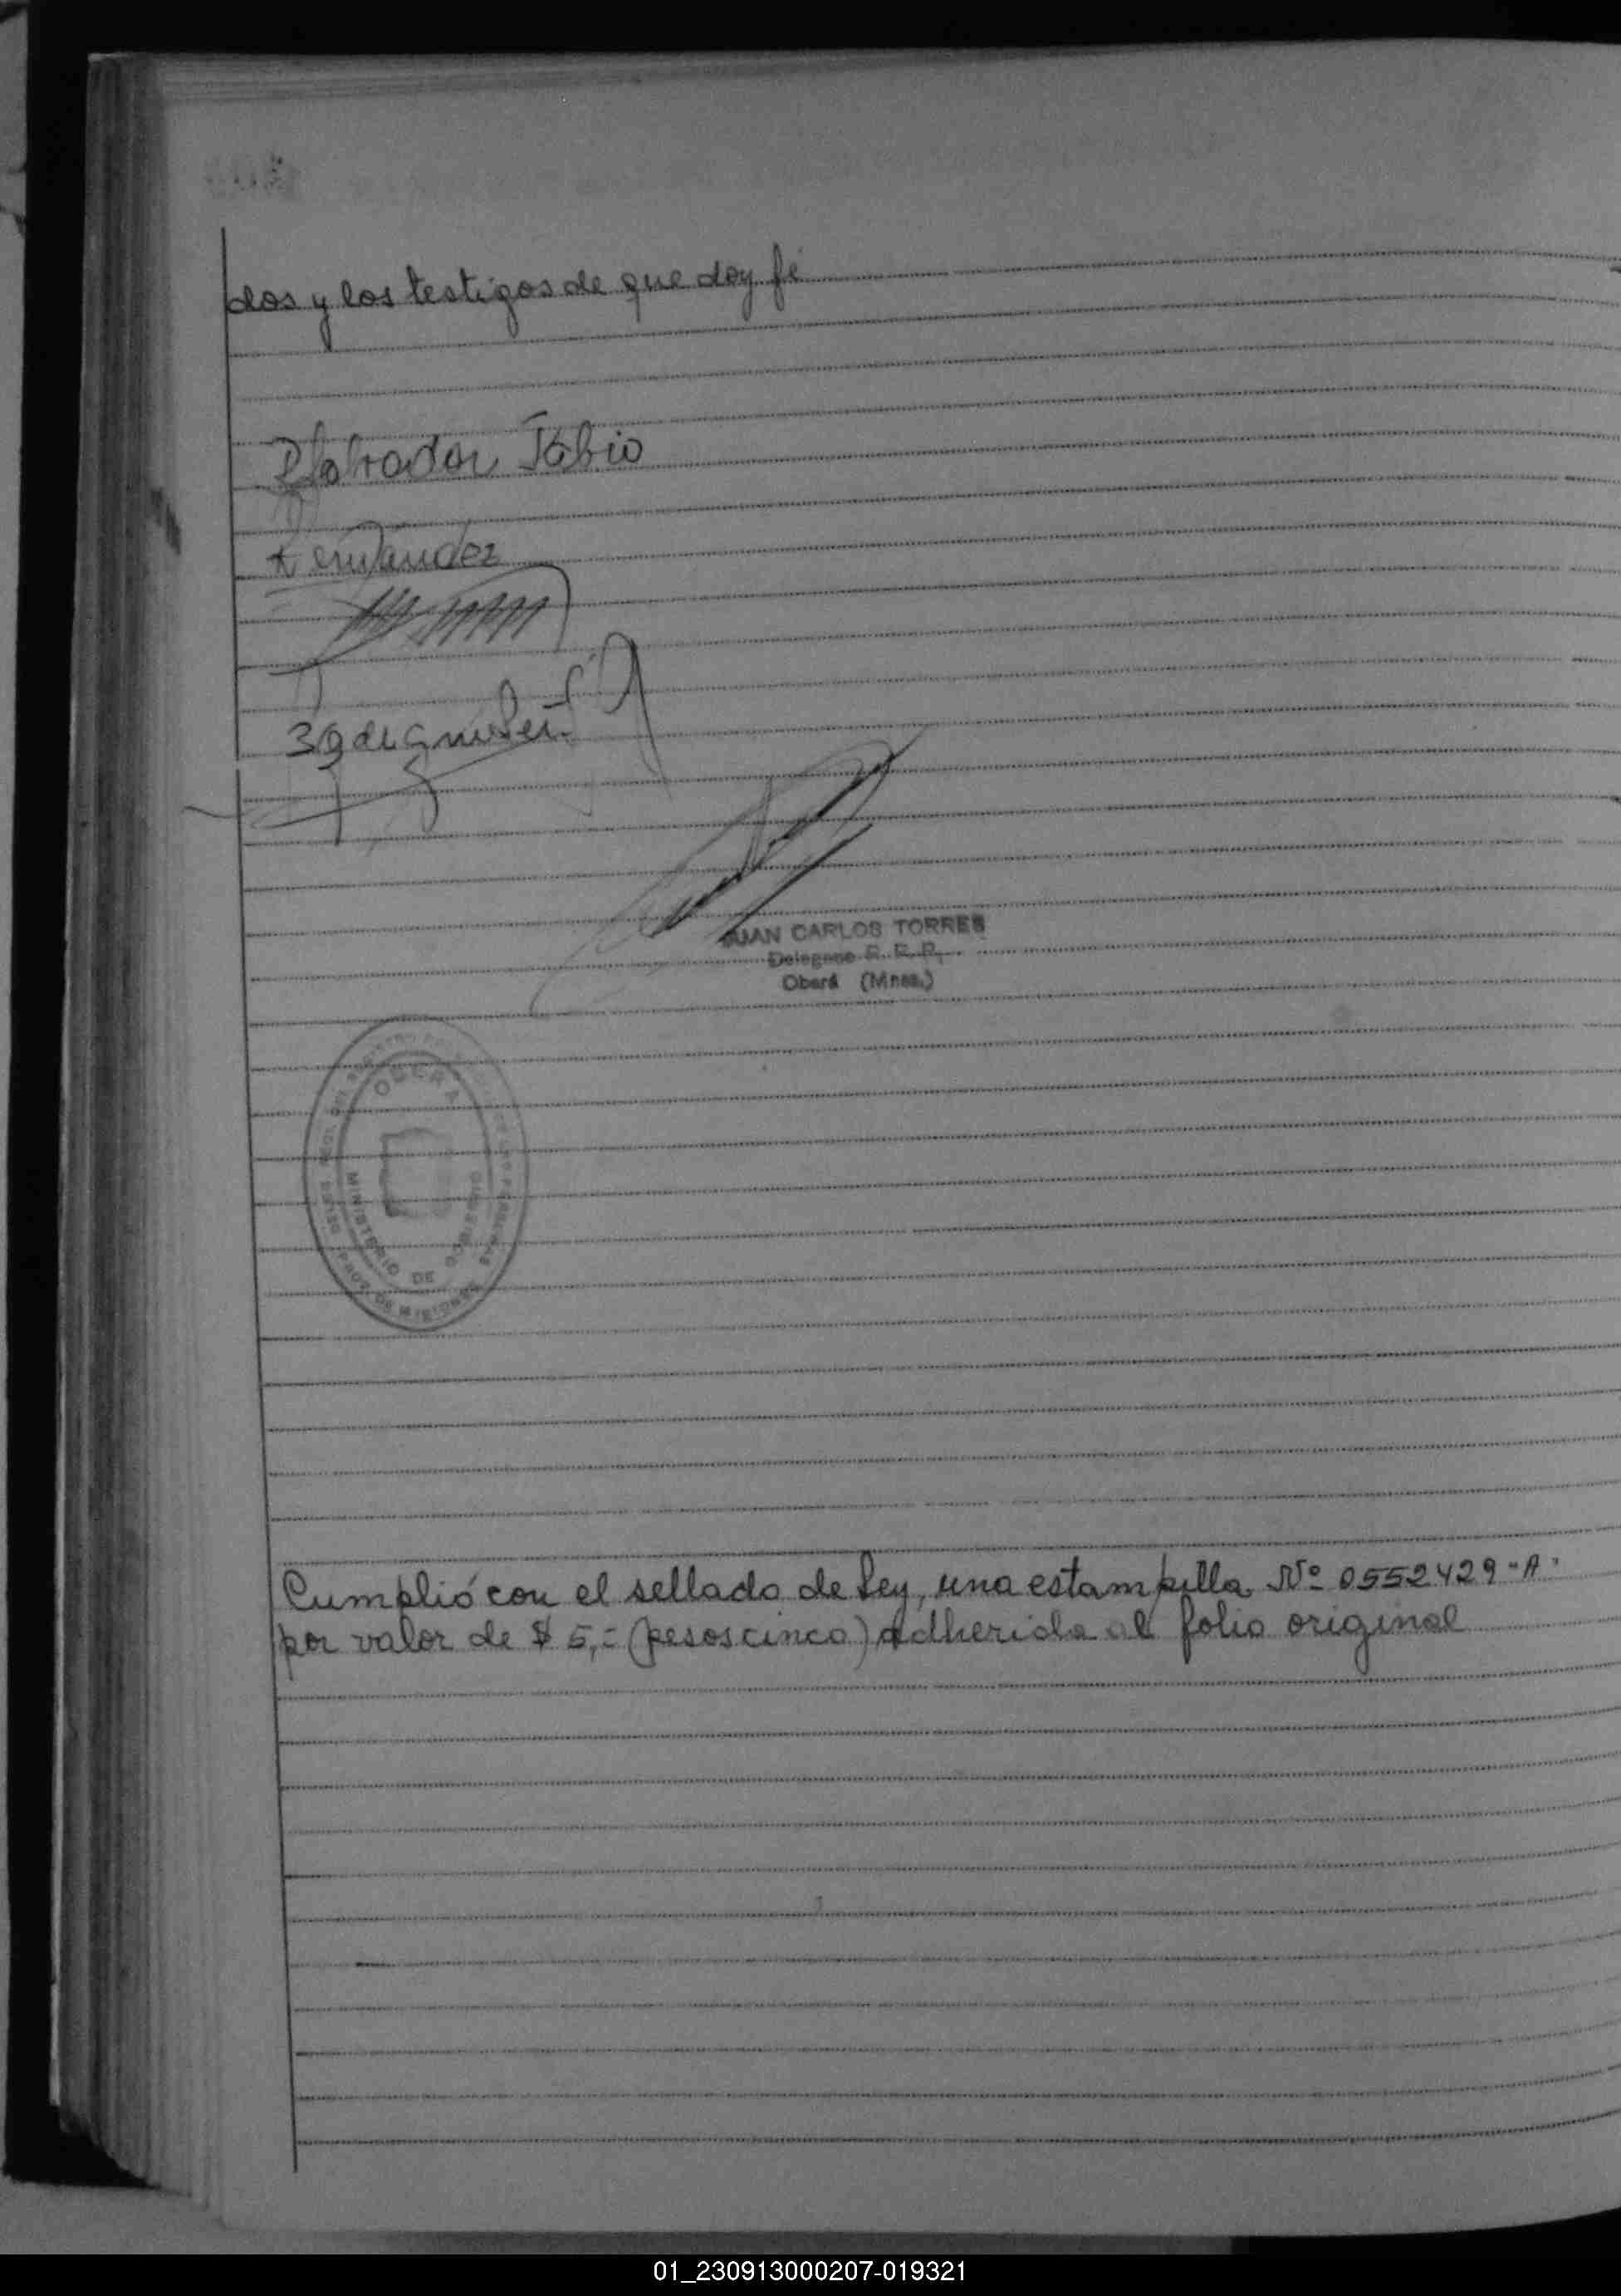 dos y los testigos de que doy fé
Fabio
JUAN CARLOS TORRES
Delegado R. P. P.
Oberá (Mnes.)
OBERA
MINISTERIO DE GOBIERNO
PROV. DE MISIONES
Cumplió con el sellado de Ley, una estampilla Nº 0552429 "A"
por valor de $ 5,= (pesos cinco) adherida al folio original
01_230913000207-019321